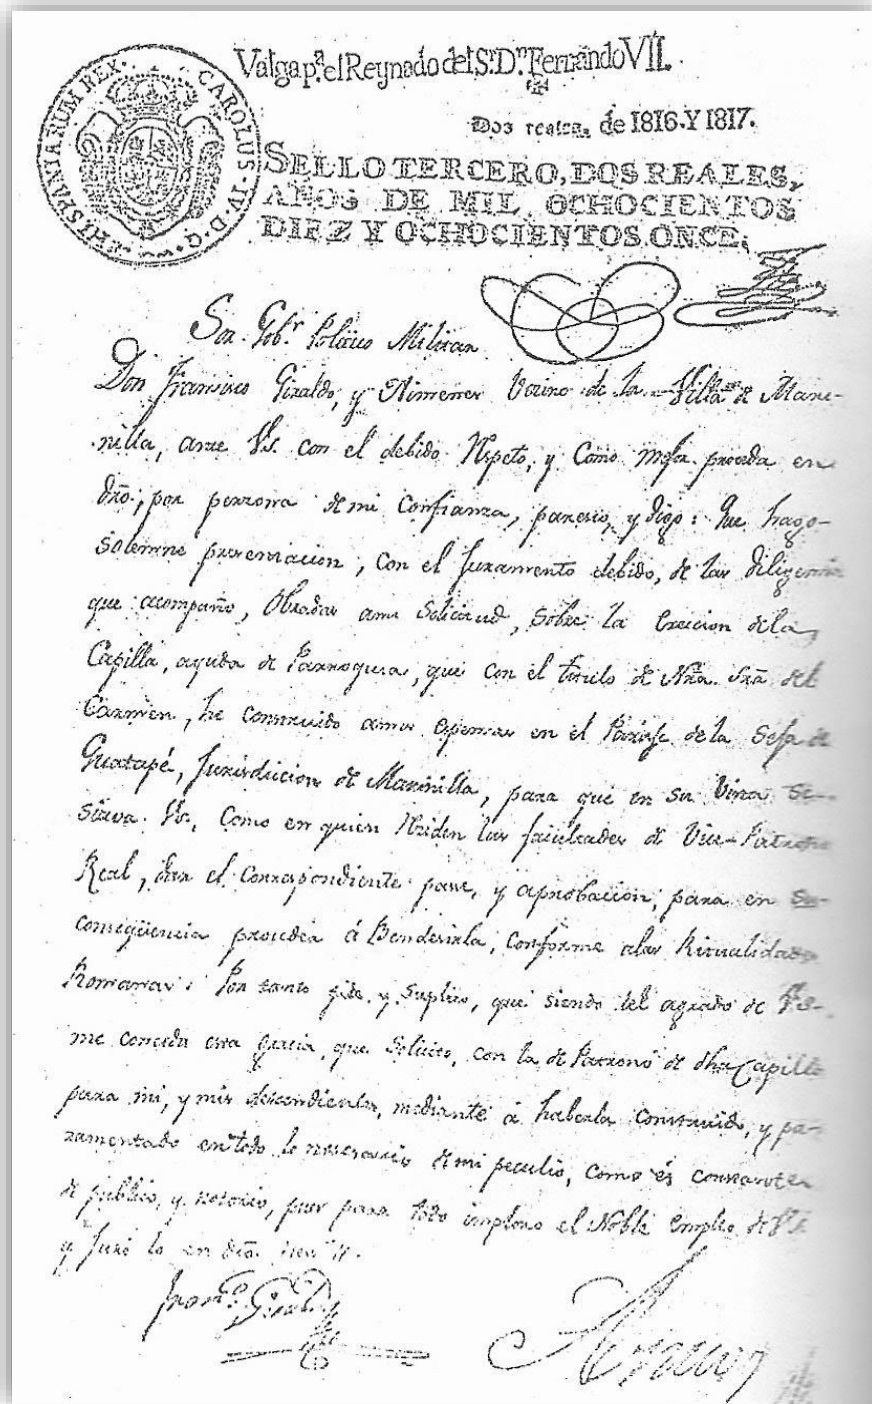 HISPANIARUM REX.
CAROLUS · IV · D · G ·
Valga pª. el Reynado del S.r D.n Fernando VII.
Dos reales, de 1816. Y 1817.
SELLO TERCERO, DOS REALES,
AÑOS DE MIL OCHOCIENTOS
DIEZ Y OCHOCIENTOS ONCE.
Sor. Gobr. Politico Militar
Don Francisco Giraldo, y Ximenez Vecino de la Villa de Mari-
nilla, ante VS. con el debido respeto, y como mejor proceda en
dro., por persona de mi confianza, paresco, y digo: Que hago
solemne presentacion, con el Juramento debido, de las diligencias
que acompaño, obradas a mi solicitud, sobre la Ereccion de la
Capilla, ayuda de Parroquia, que con el titulo de Nra. Sra. del
Carmen, he construido a mis espensas en el Paraje de la Seja de
Guatapé, Jurisdiccion de Marinilla, para que en su vista se
sirva VS. Como en quien residen las facultades de Vice-Patrono
Real, dar el correspondiente pase, y aprobacion, para en su
consegüencia proceder á Bendesirla, conforme a las Ritualidades
Romanas: Por tanto pido, y suplico, que siendo del agrado de VS.
me conceda esta gracia, que solicito, con la de Patrono de dha Capilla
para mi, y mis descendientes, mediante á haberla construido, y pa-
ramentado en todo lo necesario de mi peculio, como es constante
de publico, y notorio, pues para todo imploro el Noble Empleo de VS.
y Juro lo en dro.
Franco. Giraldo